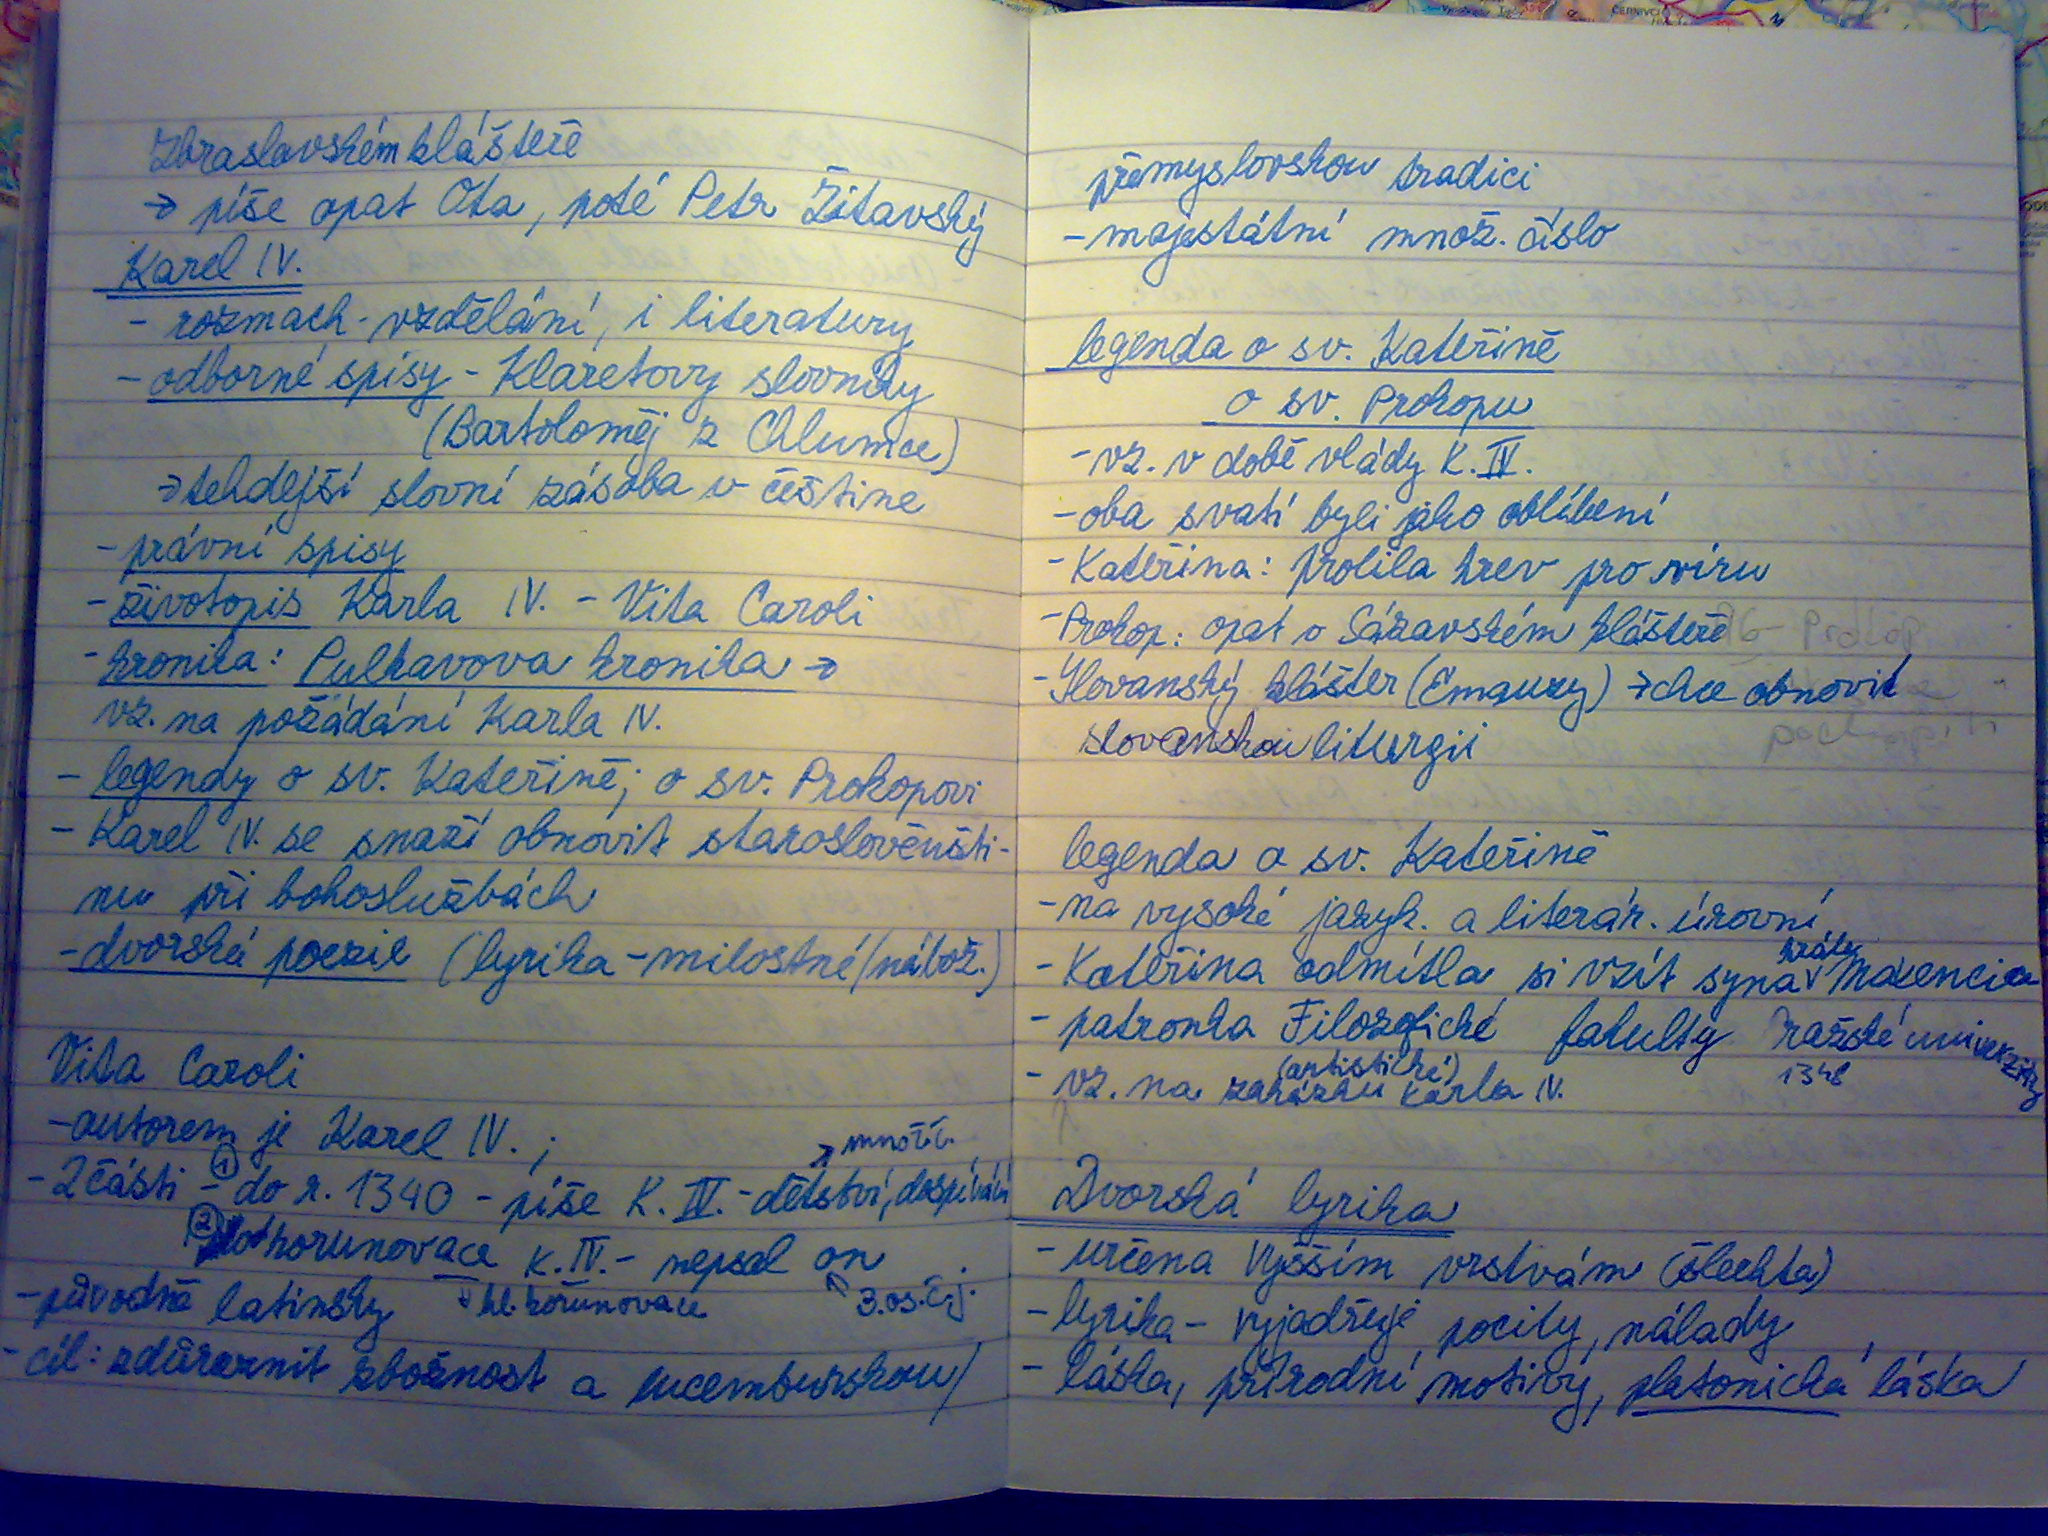 Zbraslavském klášteře
→ píše opat Ota, poté Petr Žitavský
Karel IV.
- rozmach - vzdělání, i literatury
- odborné spisy - Klaretovy slovníky
(Bartoloměj z Chlumce)
→ tehdejší slovní zásoba v češtine
- právní spisy
- životopis Karla IV. - Vita Caroli
- kronika: Pulkavova kronika →
vz. na požádání Karla IV.
- legendy o sv. Kateřině; o sv. Prokopovi
- Karel IV. se snaží obnovit staroslověnšti-
nu při bohoslužbách
- dvorská poezie (lyrika - milostné/nábož.)
Vita Caroli
- autorem je Karel IV. ;
→ množ.č.
- 2 části - ① do r. 1340 - píše K. IV. - dětství, dospívání
② korunovace K. IV. - nepsal on
- původně latinsky → hl. korunovace 3.os.č.j.
- cíl: zdůraznit zbožnost a lucemburskou/
přemyslovskou tradici
- majestátní množ. číslo
legenda o sv. Kateřině
o sv. Prokopu
- vz. v době vlády K. IV.
- oba svatí byli jako oblíbení
- Kateřina: prolila krev pro víru
- Prokop: opat v Sázavském klášteře
- Slovanský klášter (Emauzy) → chce obnovit
slovanskou liturgii
legenda o sv. Kateřině
- na vysoké jazyk. a literár. úrovni
krále
- Kateřina odmítla si vzít syna Maxencia
- patronka Filozofické fakulty Pražské univerzity
(artistické) 1348
- vz. na zakázku Karla IV.
Dvorská lyrika
- určena vyšším vrstvám (šlechta)
- lyrika - vyjadřuje pocity, nálady
- láska, přírodní motivy, platonická láska